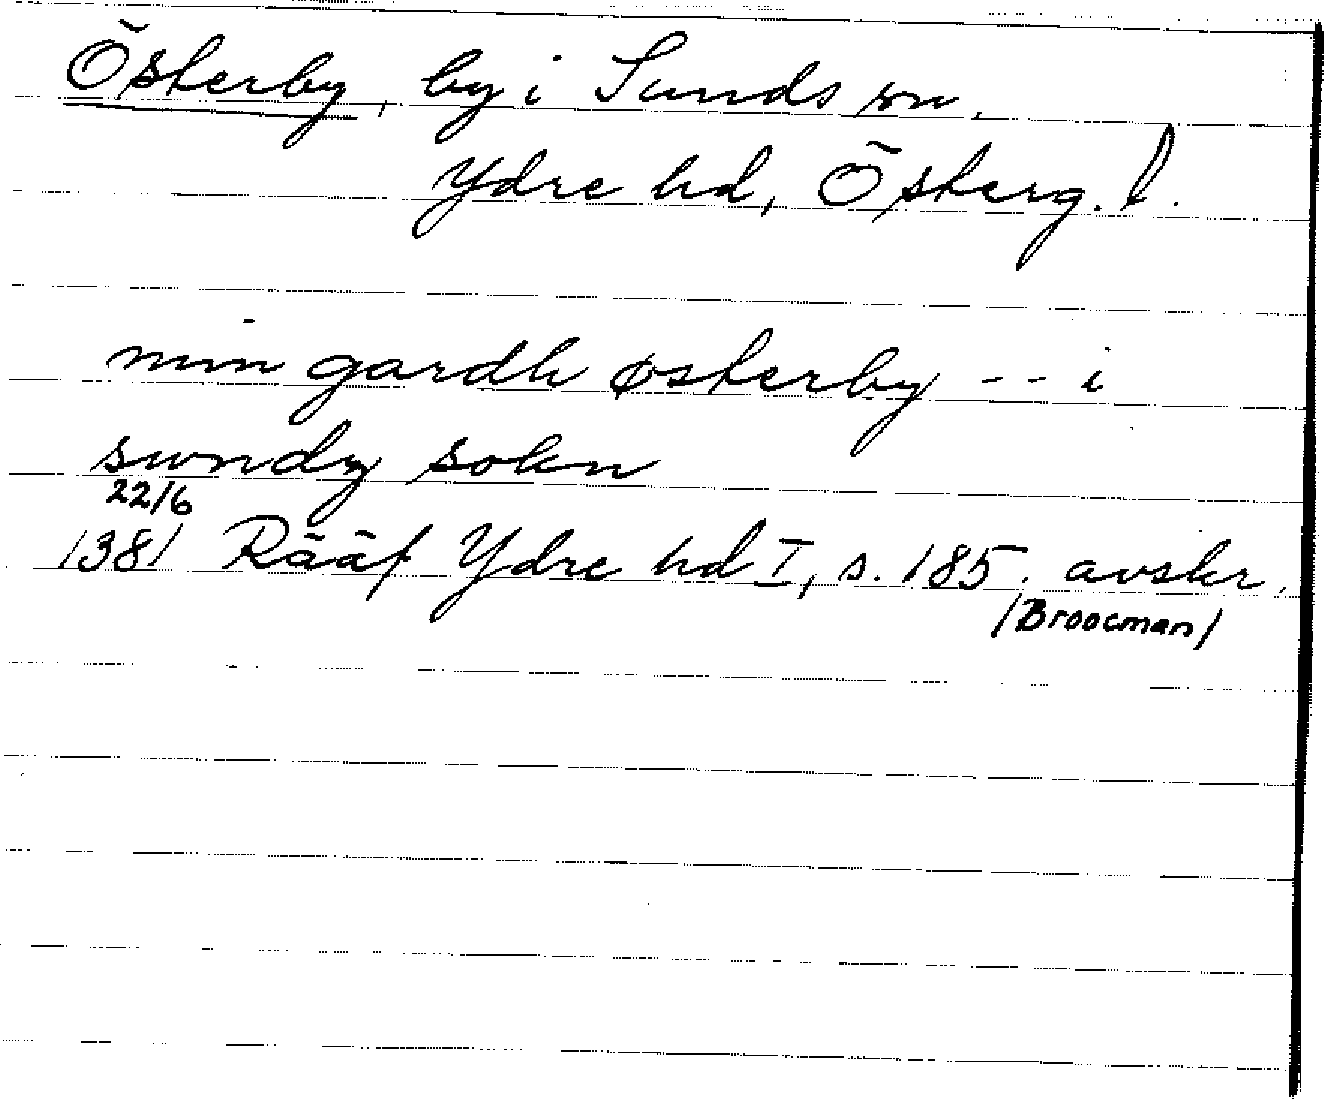 Österby, by i Sunds sn,
Ydre hd, Österg. l.
min gardh østerby -- i
swndz sokn
22/6
1381 Rääf Ydre hd I, s. 185. avskr.
/Broocman/